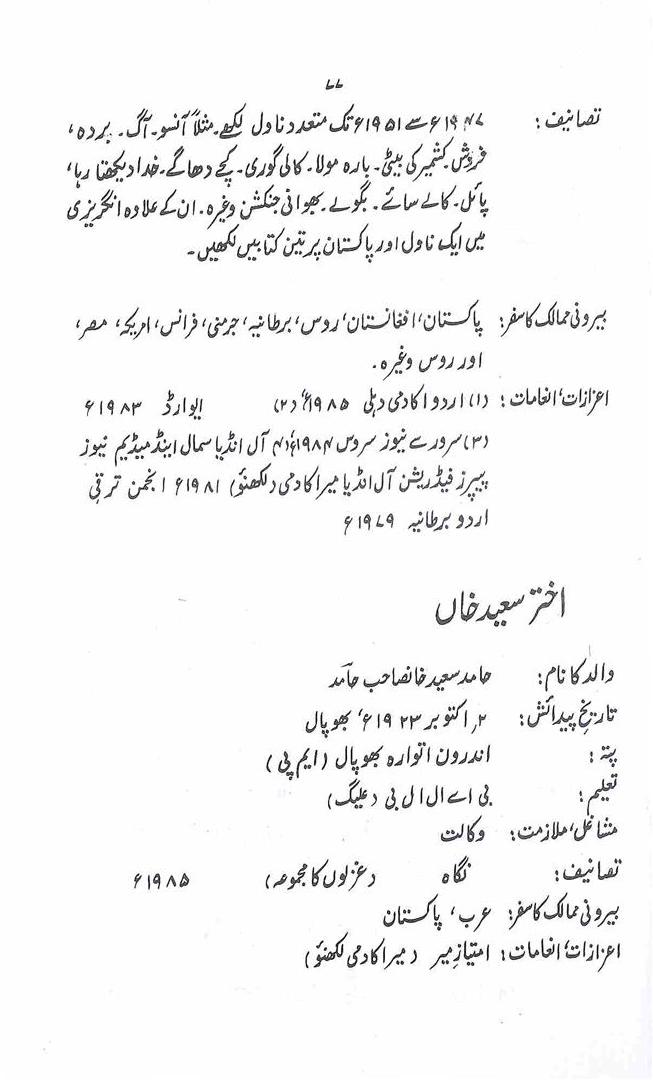 ۷۷
تصانیف: ۱۹۴۷ء سے ۱۹۵۱ء تک متعدد ناول لکھے۔ مثلاً آنسو۔ آگ۔ بردہ،
فروش۔ کشمیر کی بیٹی۔ بارہ مولا۔ کالی گوری۔ کچے دھاگے۔ خدا دیکھتا رہا،
پائل۔ کالے سائے۔ بگولے۔ بھوانی جنکشن وغیرہ۔ ان کے علاوہ انگریزی
میں ایک ناول اور پاکستان پر تین کتابیں لکھیں۔
بیرونی ممالک کا سفر: پاکستان، افغانستان، روس، برطانیہ، جرمنی، فرانس، امریکہ، مصر،
اور روس وغیرہ۔
اعزازات، انعامات: (۱) اردو اکادمی دہلی ۱۹۸۵ء، (۲) ایوارڈ ۱۹۸۳ء
(۳) سرور سے نیوز سروس ۱۹۸۴ء (۴) آل انڈیا سمال اینڈ میڈیم نیوز
پیپرز فیڈریشن آل انڈیا میر اکادمی (لکھنؤ) ۱۹۸۱ء انجمن ترقی
اردو برطانیہ ۱۹۷۹ء
اختر سعید خاں
والد کا نام: حامد سعید خانصاحب حامد
تاریخ پیدائش: ۲؍ اکتوبر ۱۹۲۳ء، بھوپال
پتہ: اندرون اتوارہ بھوپال (ایم پی)
تعلیم: بی اے ال ال بی (علیگ)
مشاغل، ملازمت: وکالت
تصانیف: نگاہ (غزلوں کا مجموعہ) ۱۹۸۵ء
بیرونی ممالک کا سفر: عرب، پاکستان
اعزازات، انعامات: امتیازِ میر (میر اکادمی لکھنؤ)